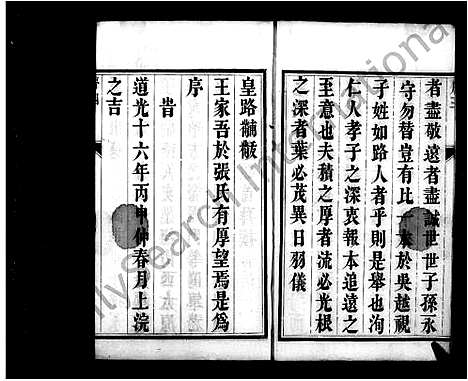 者盡敬遠者盡誠世世子孫永
守勿替豈有比一於吳越視
子姓如路人者乎則是舉也洵
仁人孝子之深衷報本追遠之
至意也夫積之厚者流必光根
之深者葉必茂異日羽儀
皇路黼黻
王家吾於張氏有厚望焉是為
序
旹
道光十六年丙申仲春月上浣
之吉